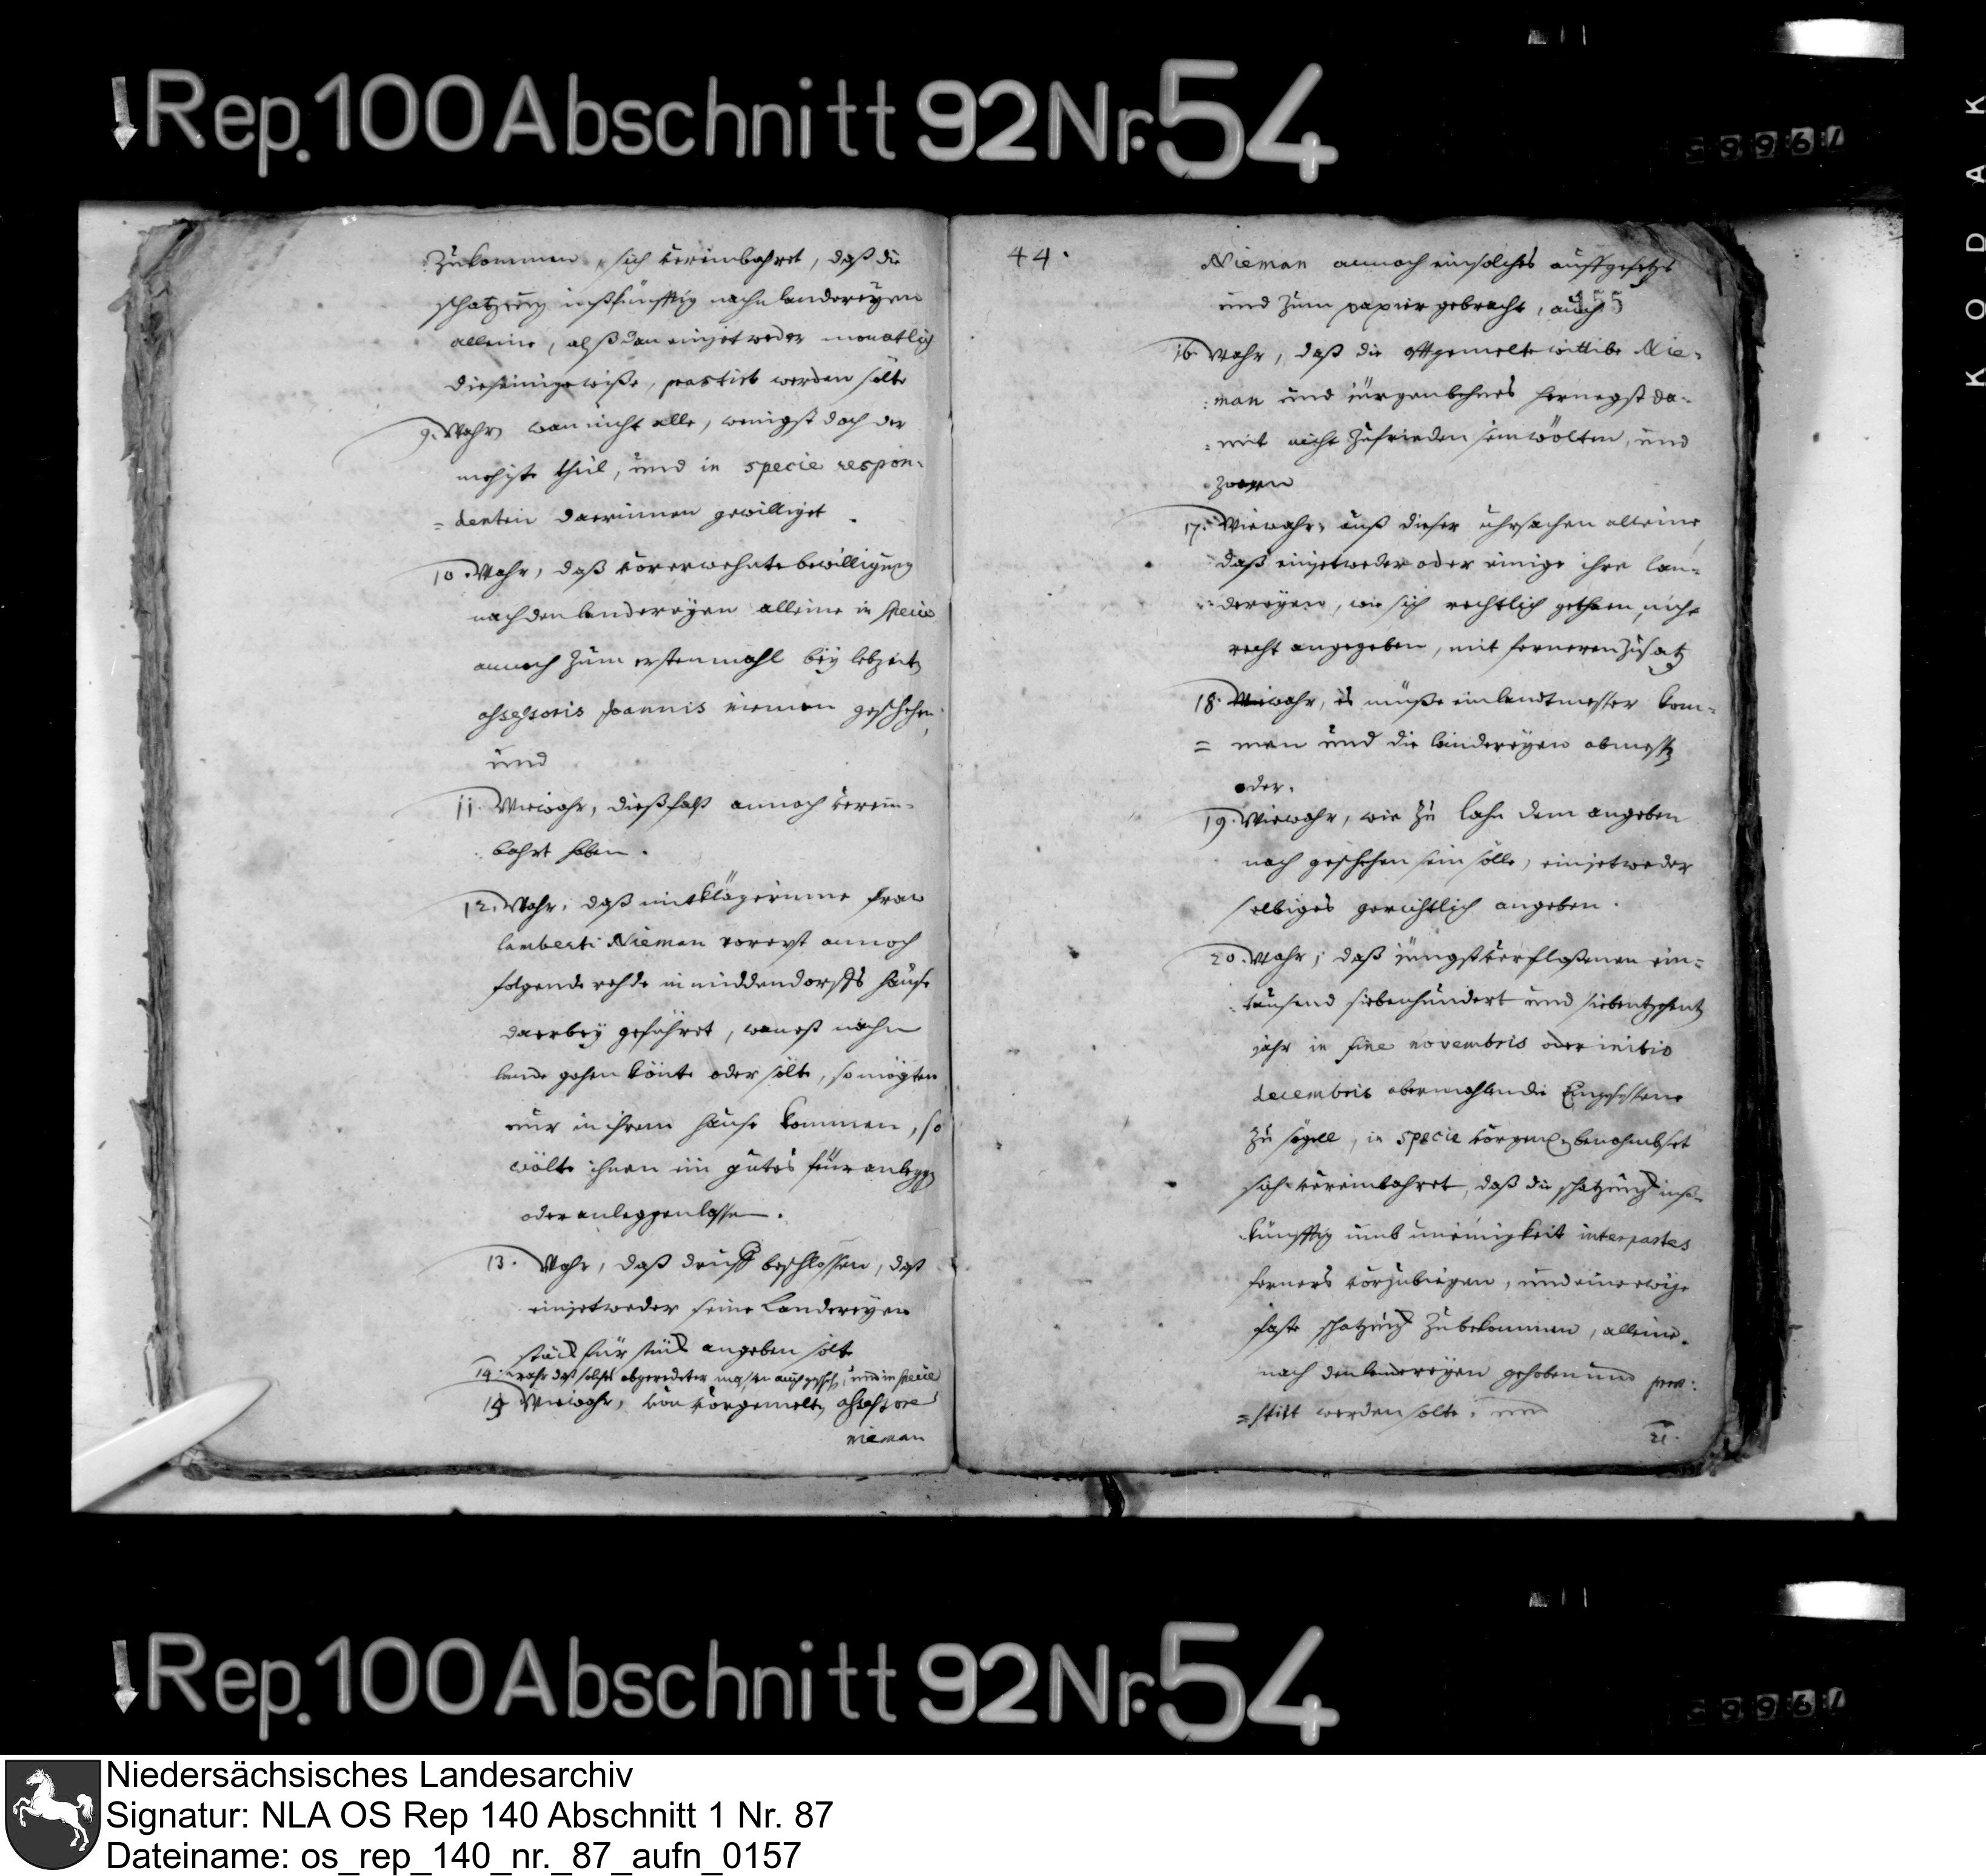 Rep. 100 Abschnitt 92 Nr. 54
KODAK
zukommen, sich vereinbahret, daß die
schatzung inßkünfftig nachn landereyen
alleine, alßdan einjetweder monatlich
die seinige wiße, prestirt werden solte
9. Wahr, wan nicht alle, wenigst doch der
mehiste theil, und in specie respon-
=dentin daerinnen gewilliget.
10. Wahr, daß vorerwehnte bewilligung
nach den landereyen alleine in specie
annoch zum erstenmahl bey lebzeit
assessoris Joannis nieman geschehen,
und
11. Wiewahr, dießfalß annoch verein-
bahrt haben.
12. Wahr, daß mitklägerinne fraw
lamberti Nieman vorerst annoch
folgende rehde in middendorffs hauße
daerbey geführet, wan eß nachn
lande gehen könte oder solte, so mögten
nur in ihrem hause kommen, so
wolte ihnen ein gutes füur anlegen
oder anleggen lassen.
13. Wahr, daß drauff beschlossen, daß
einjetweder seine Landereyen
stück für stück angeben solte
14. wahr daß solches abgeredeter maßen auch geschehen, und in specie
15 Wiewahr, von vorgemelten assessore
nieman
44.
Nieman annoch ein solches auffgesetzet
und zum papier gebracht, auch
155
16. Wahr, daß die offtgemelte wittibe Nie-
man und jürgen behnes hernegst da-
mit nicht zufrieden sein wolten, und
zwaren
17. Wiewahr, auß dieser uhrsachen alleine,
daß einjetweder oder einige ihre lan-
dereyen, wie sich rechtlich gethaen, nicht
recht angegeben, mit ferneren zusatz
18. Wiewahr, es müße ein landtmesser kom-
= men und die landereyen abmessen
oder.
19. Wiewahr, wie zu lahn dem angeben
nach geschehen sein solle, einjetweder
selbiges gerichtlich angeben.
20. Wahr, daß jüngst verfloßenen ein-
tausend siebenhundert und siebentzehent
jahr in fine novembris oder initio
decembris abermahlen die Eingesessene
zu sögell, in specie vorgemelt benahmbset
sich vereinbahret, daß die schatzung inß-
künfftig umb uneinigkeit inter partes
ferners vorzubiegen, und eine ewige
faste schatzung zu bekommen, alleine
nach den landereyen gehoben und pres-
=stirt werden solte, und
21.
Rep. 100 Abschnitt 92 Nr. 54
Niedersächsisches Landesarchiv
Signatur: NLA OS Rep 140 Abschnitt 1 Nr. 87
Dateiname: os_rep_140_nr._87_aufn_0157